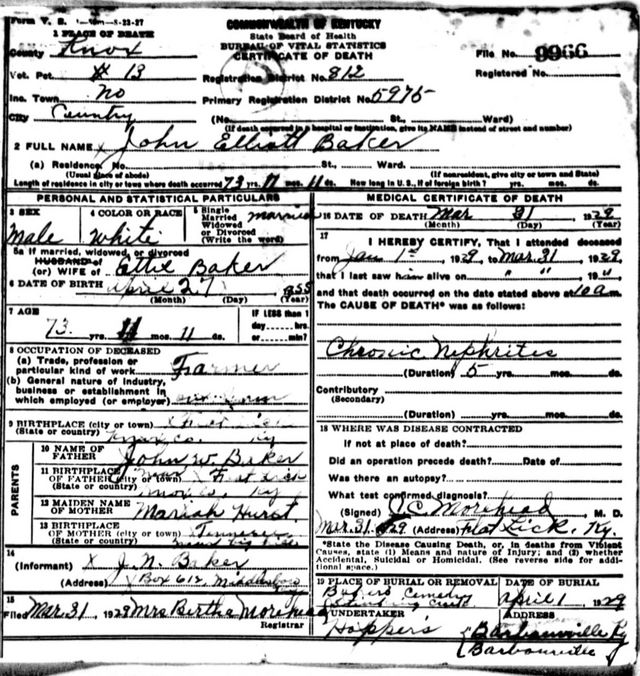 Form V. S. 8-23-27
COMMONWEALTH OF KENTUCKY
State Board of Health
BUREAU OF VITAL STATISTICS
CERTIFICATE OF DEATH
1 PLACE OF DEATH
County Knox
File No. 9966
Vot. Pct. # 13
Registration District No. 812
Registered No.
Inc. Town no
Primary Registration District No. 5975
City Country (No. St., Ward)
(If death occurred in a hospital or institution, give its NAME instead of street and number)
2 FULL NAME John Elliott Baker
(a) Residence No. St., Ward.
(Usual place of abode) (If nonresident, give city or town and State)
Length of residence in city or town where death occurred 73 yrs. 11 mos. 11 ds. How long in U. S., if of foreign birth? yrs. mos. ds.
PERSONAL AND STATISTICAL PARTICULARS
3 SEX Male
4 COLOR OR RACE White
5 Single Married Widowed or Divorced (Write the word) married
5a If married, widowed, or divorced
HUSBAND of
(or) WIFE of Ettie Baker
6 DATE OF BIRTH April 27
(Month) (Day) (Year)
7 AGE
73 yrs. 11 mos. 11 ds.
IF LESS than 1 day hrs. or min?
8 OCCUPATION OF DECEASED
(a) Trade, profession or particular kind of work Farmer
(b) General nature of industry, business or establishment in which employed (or employer)
9 BIRTHPLACE (city or town)
(State or country) Knox Co. Ky
PARENTS
10 NAME OF FATHER John W. Baker
11 BIRTHPLACE OF FATHER (city or town) Near Flat Lick
(State or country) Knox Co. Ky
12 MAIDEN NAME OF MOTHER Mariah Hurst
13 BIRTHPLACE OF MOTHER (city or town) Tennessee
(State or country)
14
(Informant) X J. N. Baker
(Address) Box 612 Middlesboro
15
Filed Mar. 31, 1929 Mrs Bertha Morehead
Registrar
MEDICAL CERTIFICATE OF DEATH
16 DATE OF DEATH Mar 31 1929
(Month) (Day) (Year)
17
I HEREBY CERTIFY, That I attended deceased
from Jan 1st, 1929, to Mar. 31, 1929,
that I last saw him alive on " ", 19 "
and that death occurred on the date stated above at 10 a m.
The CAUSE OF DEATH* was as follows:
Chronic Nephrites
(Duration) 5 yrs. mos. ds.
Contributory
(Secondary)
(Duration) yrs. mos. ds.
18 WHERE WAS DISEASE CONTRACTED
If not at place of death?
Did an operation precede death? Date of
Was there an autopsy?
What test confirmed diagnosis?
(Signed) J. C. Morehead M. D.
Mar. 31, 1929 (Address) Flat Lick, Ky.
*State the Disease Causing Death, or, in deaths from Violent
Causes, state (1) Means and nature of Injury; and (2) whether
Accidental, Suicidal or Homicidal. (See reverse side for addi-
tional space.)
19 PLACE OF BURIAL OR REMOVAL
DATE OF BURIAL
Cemetery
April 1, 1929
UNDERTAKER
Hopper's
ADDRESS
Barbourville Ky
Barbourville